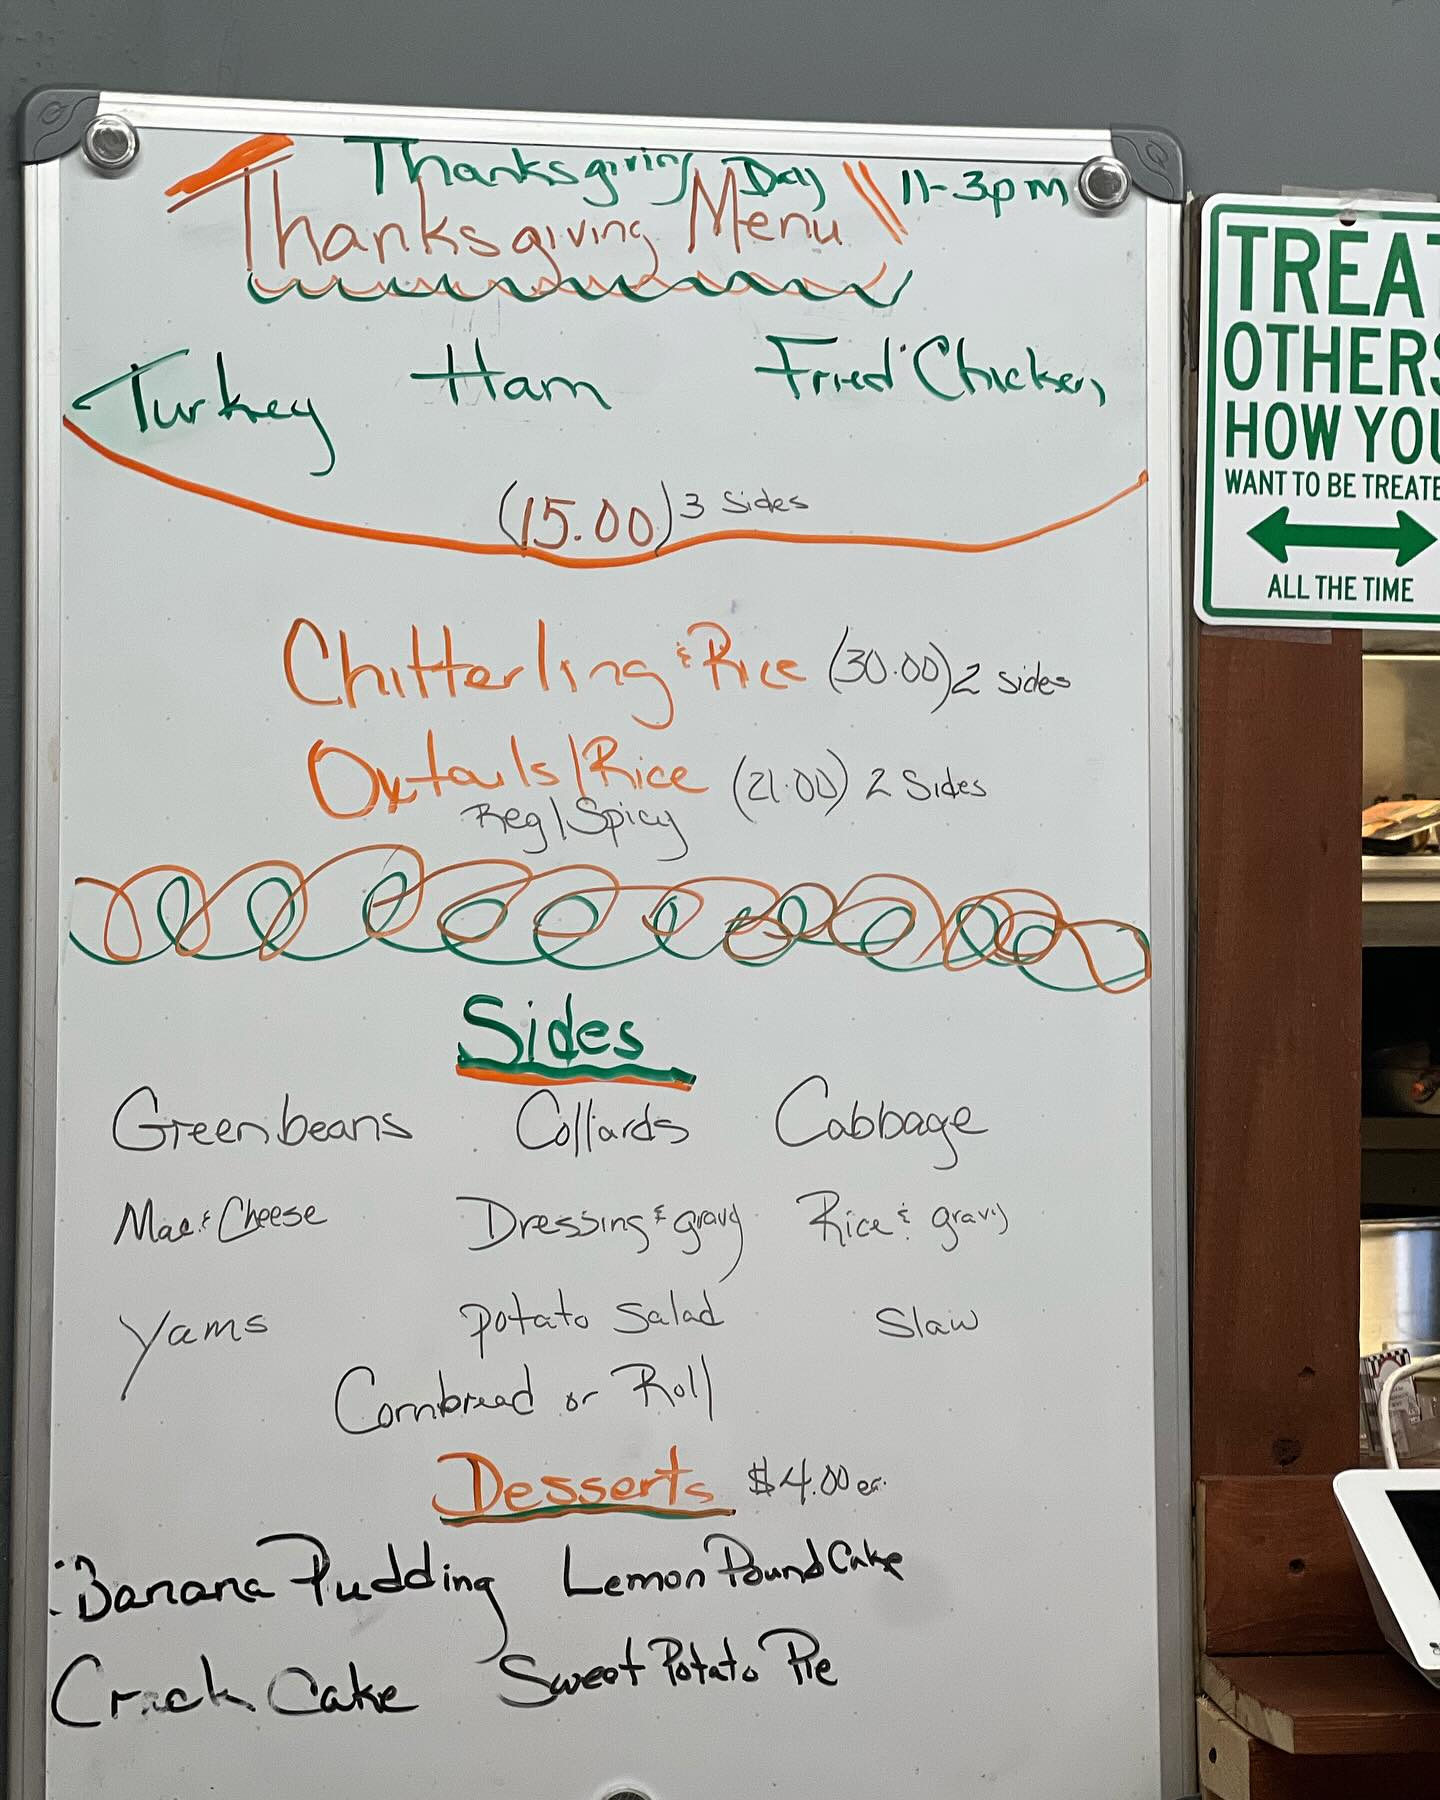 Thanksgiving Day 11-3pm
Thanksgiving Menu
Turkey Ham Fried Chicken
(15.00) 3 Sides
Chitterling & Rice (30.00) 2 sides
Oxtails/Rice (21.00) 2 Sides
Reg/Spicy
Sides
Greenbeans Collards Cabbage
Mac & Cheese Dressing & gravy Rice & gravy
Yams potato salad Slaw
Cornbread or Roll
Desserts $4.00 ea.
Banana Pudding Lemon Pound Cake
Crack Cake Sweet Potato Pie
TREAT
OTHERS
HOW YOU
WANT TO BE TREATE
ALL THE TIME